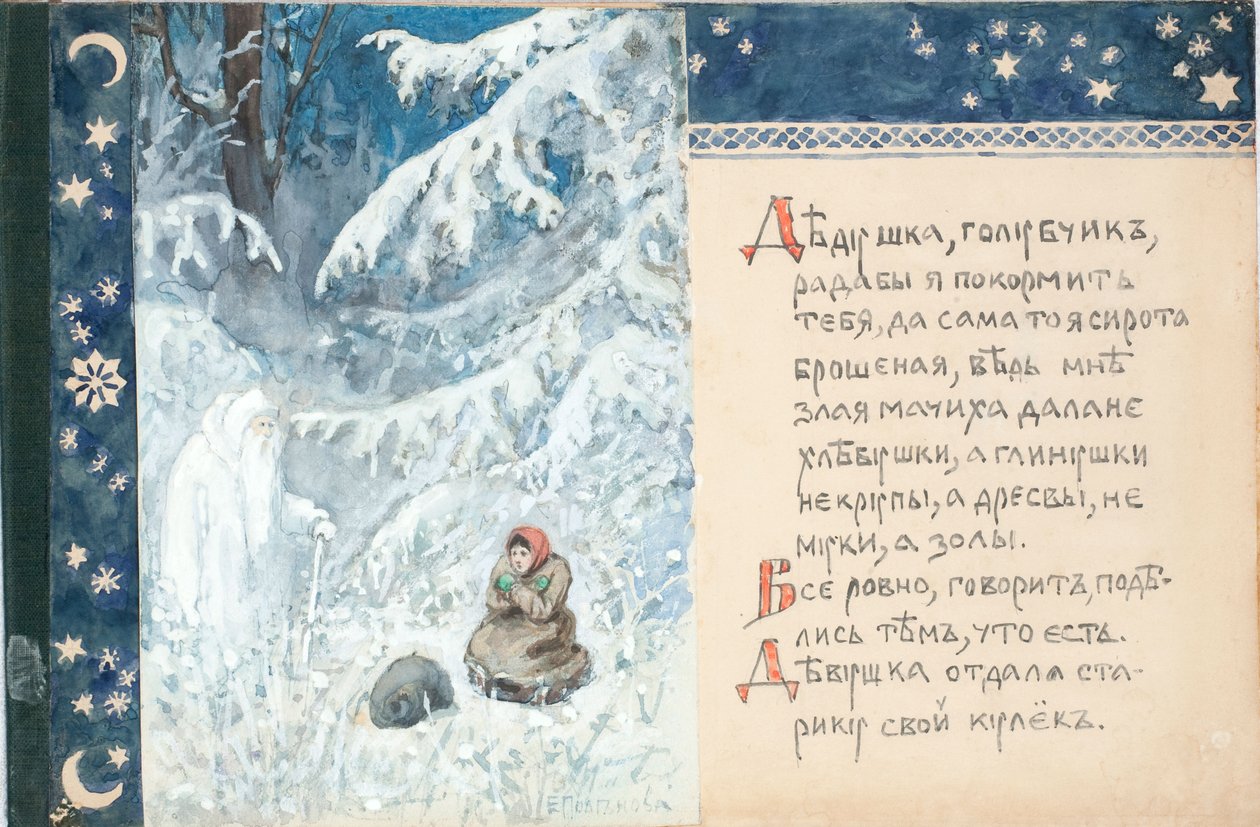 Дѣдушка, голубчикъ,
рада бы я покормить
тебя, да сама то я сирота
брошеная, вѣдь мнѣ
злая мачиха дала не
хлѣбушки, а глинушки
не крупы, а дресвы, не
муки, а золы.
Все ровно, говоритъ, подѣ-
лись тѣмъ, что есть.
Дѣвушка отдала ста-
рику свой кулёкъ.
ЕПолѣнова